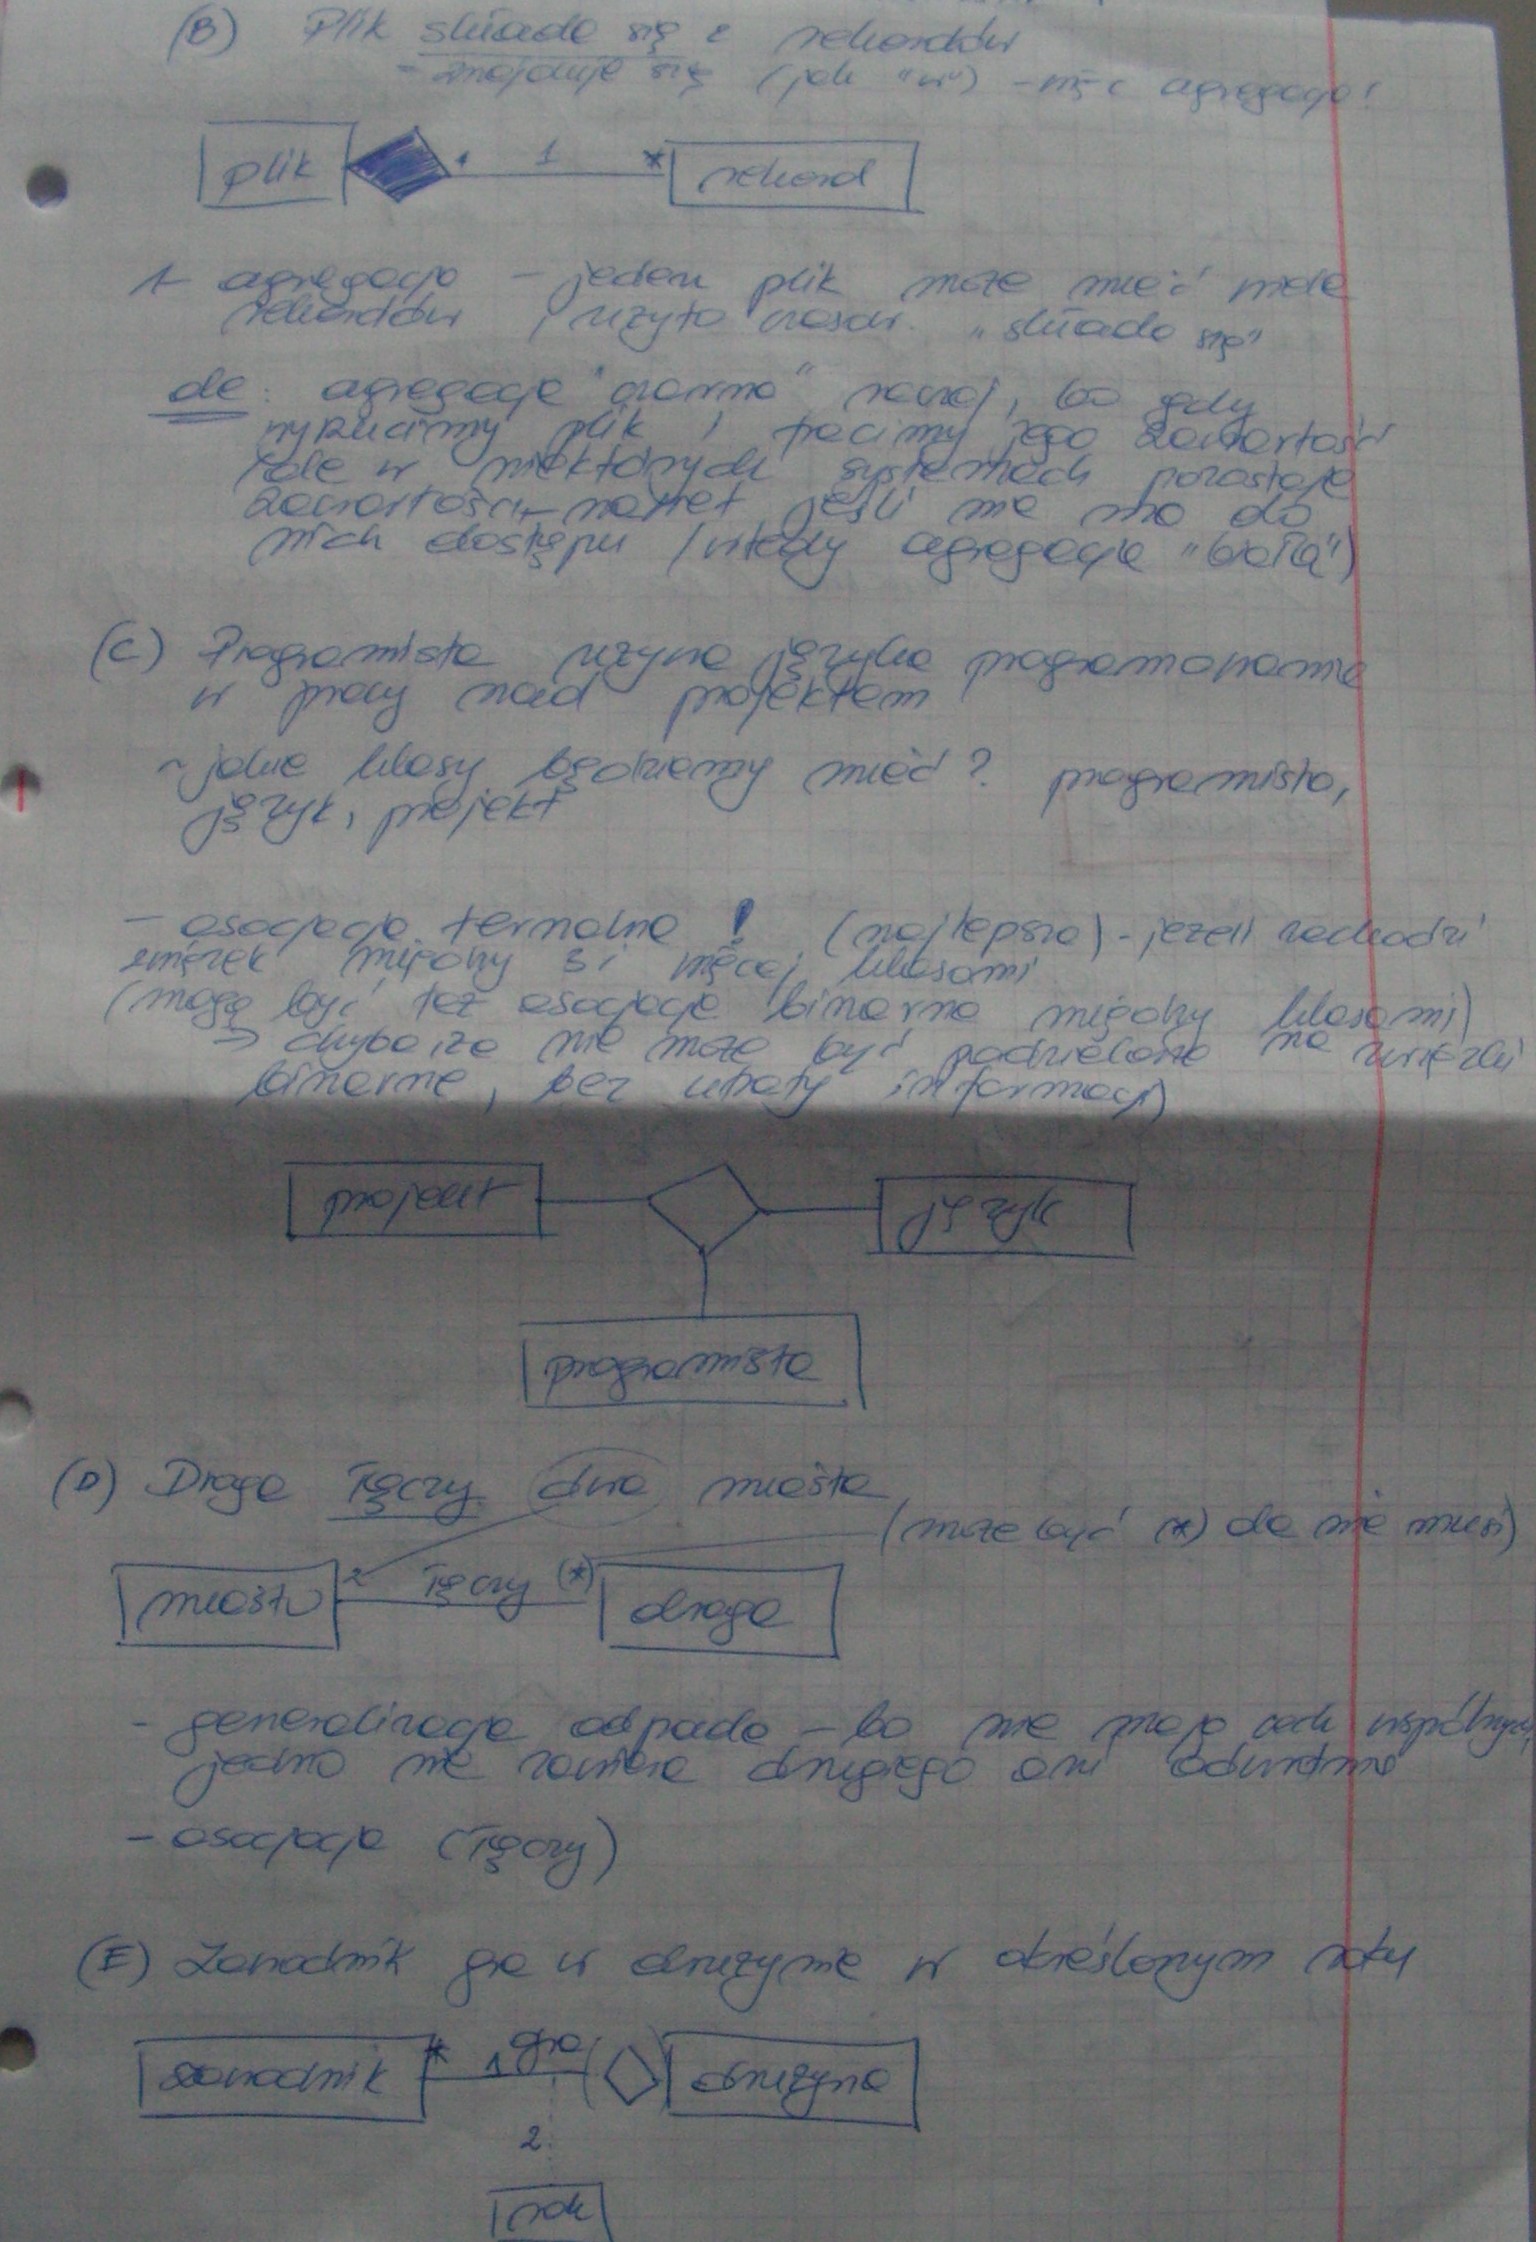 (B) Plik składa się z rekordów
- znajduje się (jak "w") - więc agregacja!
plik 1 * rekord
1- agregacja - jeden plik może mieć wiele
rekordów, użyto czasow. "składa się"
ale: agregacja "czarna" raczej, bo gdy
wyrzucimy plik, tracimy jego zawartość
(ale w niektórych systemach pozostaje
zawartość, nawet jeśli nie ma do
nich dostępu (wtedy agregacja "biała")
(C) Programista używa języka programowania
w pracy nad projektem
~ jakie klasy będziemy mieć? programista,
język, projekt
- asocjacja ternalna! (najlepsza) - jeżeli zachodzi
związek między 3 i więcej klasami
(mogą być też asocjacje binarne między klasami)
→ chyba że nie może być podzielone na związki
binarne, bez utraty informacji)
projekt język
programista
(D) Droga łączy dwa miasta
(może być (*) ale nie musi)
miasto 2 łączy (*) droga
- generalizacja odpada - bo nie mają cech wspólnych,
jedno nie zawiera drugiego ani odwrotnie
- asocjacja (łączy)
(E) Zawodnik gra w drużynie w określonym roku
zawodnik * 1 gra drużyna
2.
rok